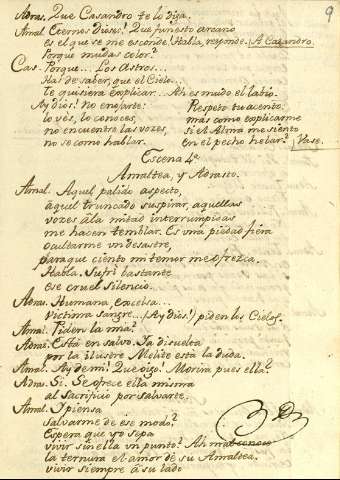 9
Adras. Que Casandro te lo diga.
Amal. Eternos Dioses! Que funesto arcano
es el que se me esconde! Habla, responde. A Casandro.
Porqué mudas color?
Cas. Porque... Los Astros...
Has de saber, que el Cielo...
te quisiera explicar... Ah es mudo el labio.
Ay dios! no en és arte: Respeto tu acento:
lo vés, lo conoces, mas como explicarme
no encuentra las vozes, si el Alma me siento
no se como hablar. en el pecho helar? Vase.
Escena 4ª
Amaltea, y Adrasto.
Amal. Aquel palido aspecto,
aquel truncado suspirar, aquellas
vozes à la mitad interrumpidas
me hacen temblar. Es una piedad fiera
ocultarme un desastre,
para que ciento mi temor me ofrezca.
Habla. Sufri bastante
ese cruel silencio.
Adras. Humana excelsa...
victima sangre... (Ay Dios!) piden los Cielos.
Amal. Piden la mia?
Adras. Está en salvo. Ya disuelta
por la ilustre Melite está la duda.
Amal. Ay de mi! Que oigo! Morirá pues ella?
Adras. Si. Se ofrece ella misma
al Sacrificio por salvarte.
Amal. I piensa
salvarme de ese modo?
Espera que yo sepa
vivir sin ella un punto? Ah mal conoce
la ternura el amor de su Amaltea.
vivir siempre a su lado